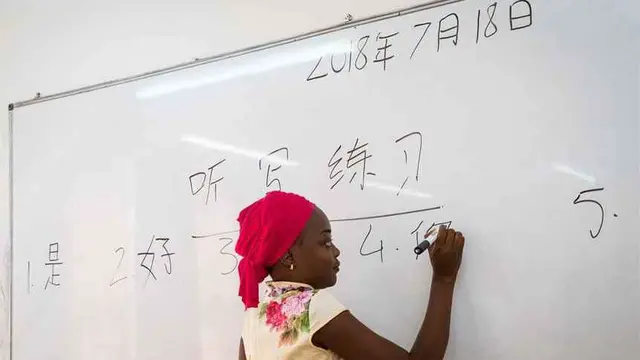 2018年7月18日
听写练习
1.是 2.好 3 4. 5.